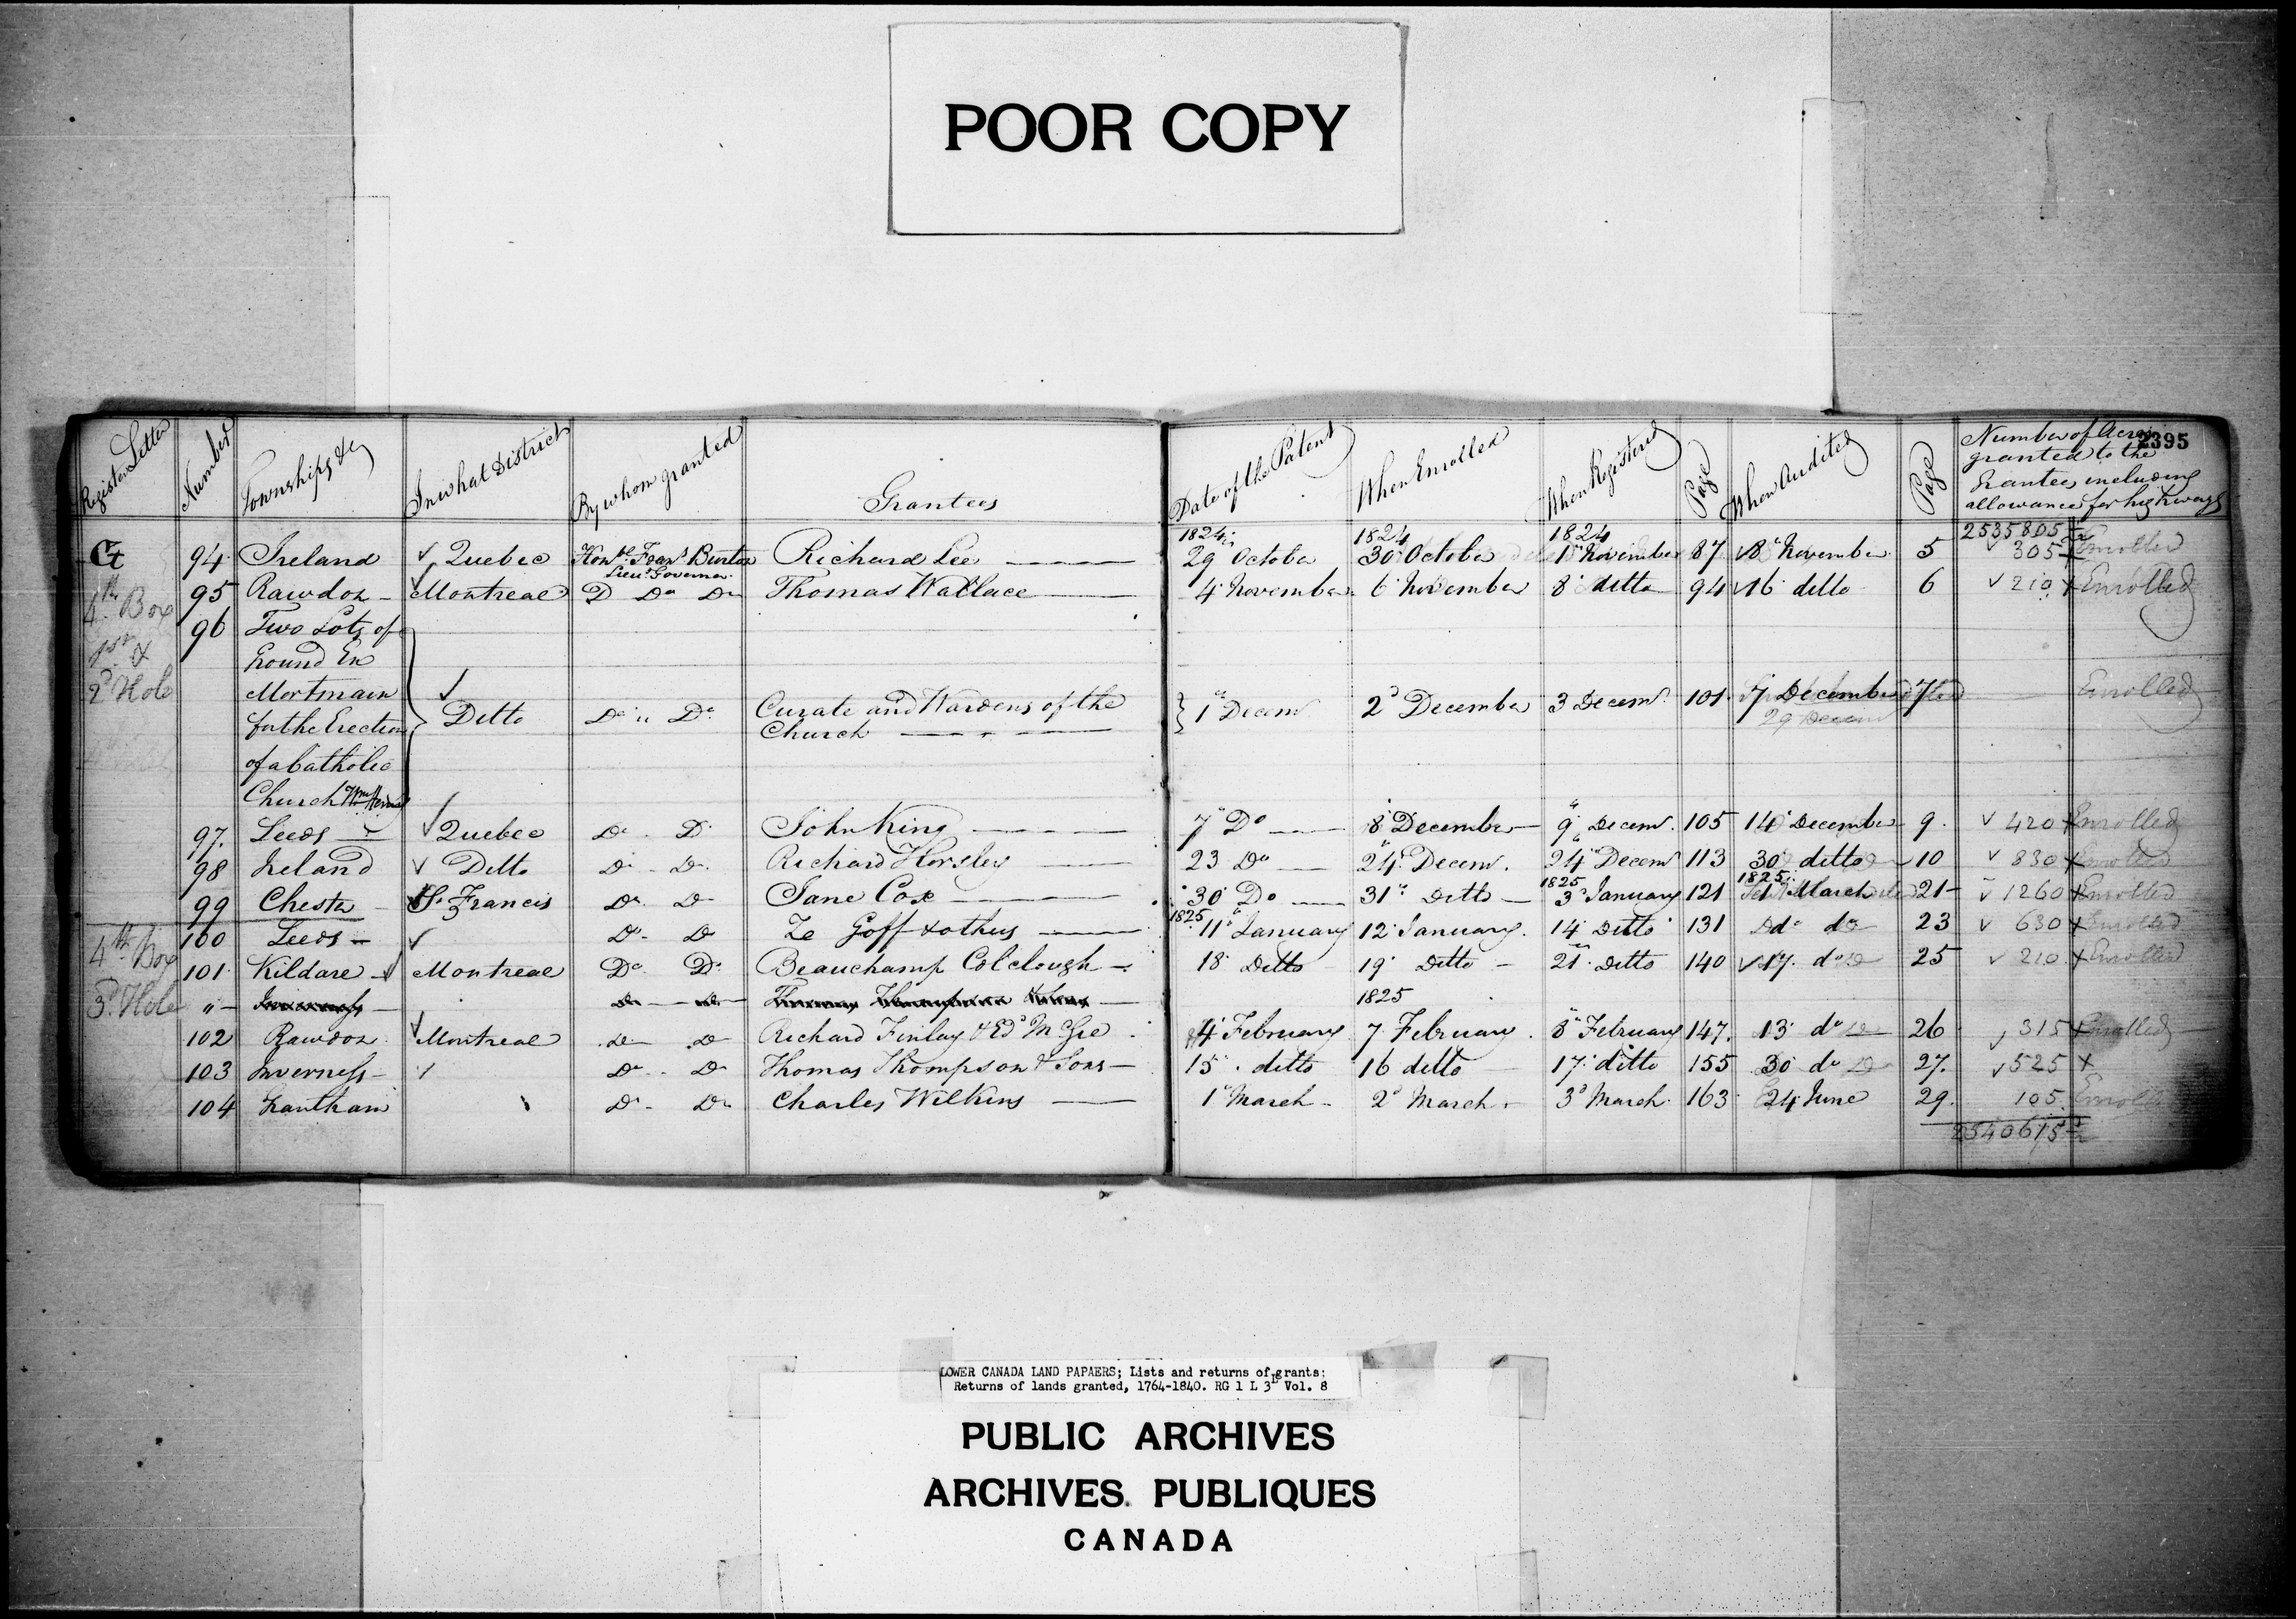 POOR COPY
2395
Register Letter Number Townships &c In what District By whom granted Grantees Date of the Patent When Enrolled When Registered Page When Audited Page Number of Acres
granted to the
Grantees including
allowance for highways
1824 1824 1824 2535805
94 Ireland Quebec Honble Frans Burton Richard Lee 29 October 30 October 1 November 87 8 November 5 305 Enrolled
Lieut Governor
4th Box 95 Rawdon Montreal Do Do Thomas Wallace 4 November 6 November 8 ditto 94 16 ditto 6 210 Enrolled
96 Two Lots of
Ground En
2d Hole Mortmain
for the Erection Ditto Do Do Curate and Wardens of the 1 Decemr 2d December 3 Decemr 101 7 December 7 Enrolled
Church 29 Decem
of a Catholic
Church
97. Leeds Quebec Do Do John King 7 Do 8 December 9 Decemr 105 14 December 9 420 Enrolled
98 Ireland Ditto Do Do Richard Horsley 23 Do 24 Decemr. 24 Decemr 113 30 ditto 10 830 Enrolled
1825 1825
99 Chester St Francis Do Do Jane Cox 30 Do 31 Ditto 3d January 121 1 March 21 1260 Enrolled
1825
100 Leeds Do Do Goff & others 11 January 12 January. 14 Ditto 131 do do 23 630 Enrolled
4th Box 101 Kildare Montreal Do Do Beauchamp Colclough 18 Ditto 19 Ditto 21 Ditto 140 17 do 25 210 Enrolled
3d Hole " Inverness Do Do Thomas Thompson 1825
102 Rawdon Montreal Do Do Richard Finlay & Ed McGie 4 February 7 February 8 February 147. 13 do 26 315 Enrolled
103 Inverness Do Do Thomas Thompson & Sons 15 ditto 16 ditto 17 ditto 155 30 do 27. 525
104 Grantham Do Do Charles Wilkins 1 March 2d March 3d March 163 24 June 29. 105 Enrolled
2540615
LOWER CANADA LAND PAPAERS; Lists and returns of grants:
Returns of lands granted, 1764-1840. RG 1 L 3L Vol. 8
PUBLIC ARCHIVES
ARCHIVES PUBLIQUES
CANADA